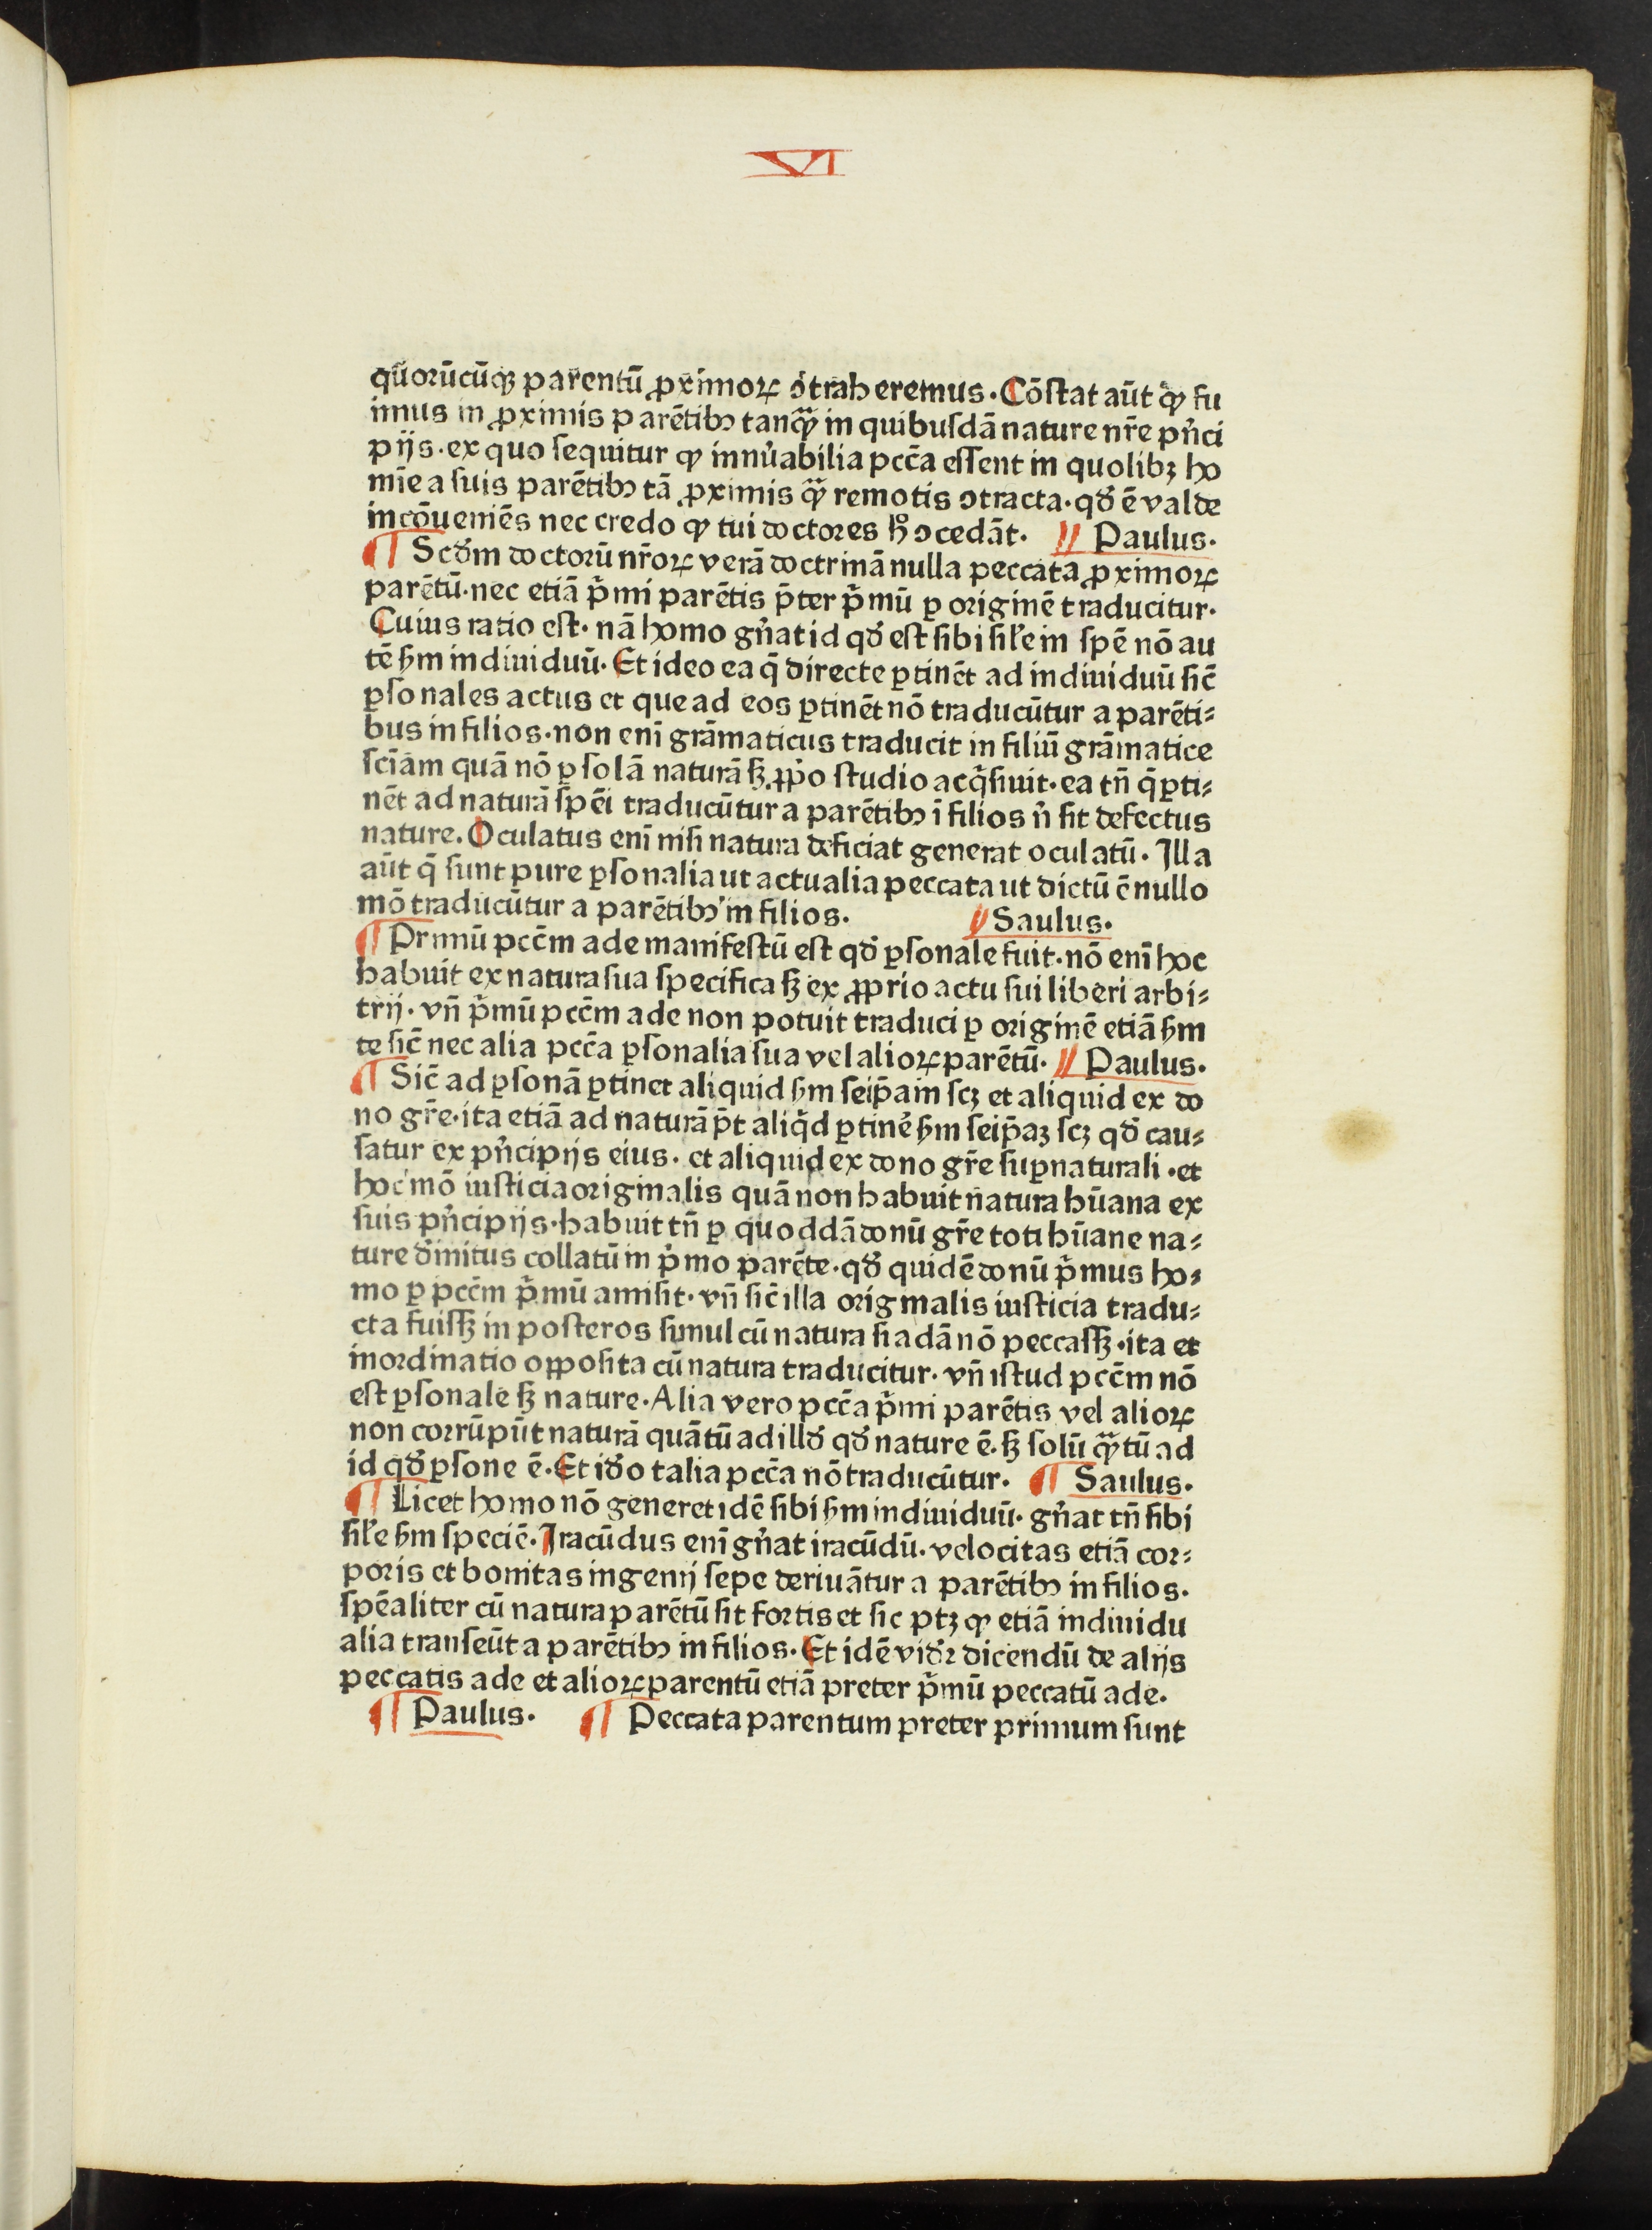 VI
qũorũcũqꝫ parentũ ꝓximoꝝ ↄ̃traheremus. Cõstat aũt ꝙ fu
imus in ꝓximis parẽtibꝯ tanꝙ̃ in quibusdã nature nr̃e pñci
pijs. ex quo sequitur ꝙ innũabilia pcc̃a essent in quolibꝫ ho
mĩe a suis parẽtibꝯ tã ꝓximis ꝙ̃ remotis ↄtracta. qđ ẽ valde
incõueniẽs nec credo ꝙ tui doctores hͦ ↄcedãt. ¶ Paulus.
¶ Scđm doctorũ nr̃oꝝ verã doctrinã nulla peccata ꝓximoꝝ
parẽtũ. nec etiã p̃mi parẽtis p̃ter p̃mũ ꝑ originẽ traducitur.
Cuius ratio est. nã homo gñat id qđ est sibi sil̃e in spẽ nõ au
tẽ ẜm indiuiduũ. Et ideo ea q̃ directe ꝑtinẽt ad indiuiduũ sic̃
ꝑsonales actus et que ad eos ꝑtinẽt nõ traducũtur a parẽti⸗
bus in filios. non enĩ grãmaticus traducit in filiũ grãmatice
sciãm quã nõ ꝑ solã naturã sꝫ ꝓp̃o studio acq̃siuit. ea tñ q̃ ꝑti⸗
nẽt ad naturã spẽi traducũtur a parẽtibꝯ ĩ filios ñ sit defectus
nature. Oculatus enĩ nisi natura deficiat generat oculatũ. Illa
aũt q̃ sunt pure ꝑsonalia ut actualia peccata ut dictũ ẽ nullo
mõ traducũtur a parẽtibꝯ in filios. ¶ Saulus.
¶ Primũ pcc̃m ade manifestũ est qđ ꝑsonale fuit. nõ enĩ hoc
habuit ex natura sua specifica sꝫ ex ꝓprio actu sui liberi arbi⸗
trij. vñ p̃mũ pcc̃m ade non potuit traduci ꝑ originẽ etiã ẜm
te sic̃ nec alia pcc̃a ꝑsonalia sua vel alioꝝ parẽtũ. ¶ Paulus.
¶ Sic̃ ad ꝑsonã ꝑtinet aliquid ẜm seip̃am scꝫ et aliquid ex do
no gr̃e. ita etiã ad naturã p̃t aliq̃d ꝑtinẽ ẜm seip̃aꝫ scꝫ qđ cau⸗
satur ex pñcipijs eius. et aliquid ex dono gr̃e suꝑnaturali. et
hoc mõ iusticia originalis quã non habuit natura hũana ex
suis pñcipijs. habuit tñ ꝑ quoddã donũ gr̃e toti hũane na⸗
ture diuinitus collatũ in p̃mo parẽte. qđ quidẽ donũ p̃mus ho⸗
mo ꝑ pcc̃m p̃mũ amisit. vñ sic̃ illa originalis iusticia tradu⸗
cta fuissꝫ in posteros simul cũ natura si adã nõ peccassꝫ. ita et
inordinatio oꝓposita cũ natura traducitur. vñ istud pcc̃m nõ
est ꝑsonale sꝫ nature. Alia vero pcc̃a p̃mi parẽtis vel alioꝝ
non corrũpũt naturã quãtũ ad illđ qđ nature ẽ. sꝫ solũ ꝙ̃tũ ad
id qđ ꝑsone ẽ. Et iđo talia pcc̃a nõ traducũtur. ¶ Saulus.
¶ Licet homo nõ generet idẽ sibi ẜm indiuiduũ. gñat tñ sibi
sil̃e ẜm speciẽ. Iracũdus enĩ gñat iracũdũ. velocitas etiã cor⸗
poris et bonitas ingenij sepe deriuãtur a parẽtibꝯ in filios.
spẽaliter cũ natura parẽtũ sit fortis et sic ptꝫ ꝙ etiã indiuidu
alia transeũt a parẽtibꝯ in filios. Et idẽ viđr dicendũ de alijs
peccatis ade et alioꝝ parentũ etiã preter p̃mũ peccatũ ade.
¶ Paulus. ¶ Peccata parentum preter primum sunt